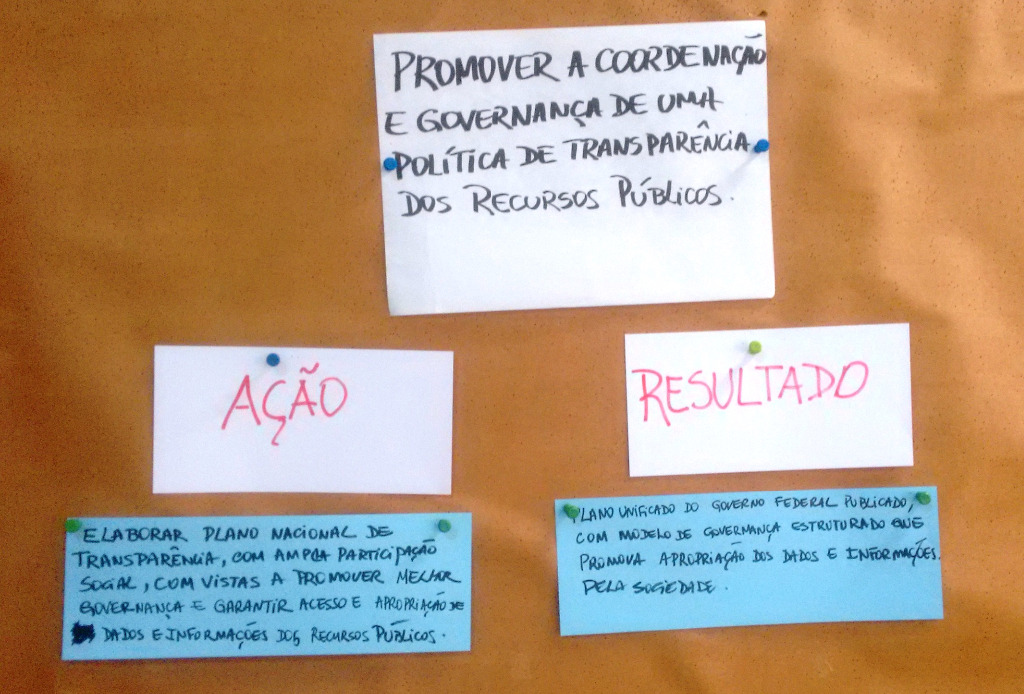 PROMOVER A COORDENAÇÃO
E GOVERNANÇA DE UMA
POLÍTICA DE TRANSPARÊNCIA
DOS RECURSOS PÚBLICOS.
AÇÃO
RESULTADO
ELABORAR PLANO NACIONAL DE
TRANSPARÊNCIA, COM AMPLA PARTICIPAÇÃO
SOCIAL, COM VISTAS A PROMOVER MELHOR
GOVERNANÇA E GARANTIR ACESSO E APROPRIAÇÃO DE
DADOS E INFORMAÇÕES DOS RECURSOS PÚBLICOS.
PLANO UNIFICADO DO GOVERNO FEDERAL PUBLICADO,
COM MODELO DE GOVERNANÇA ESTRUTURADO QUE
PROMOVA APROPRIAÇÃO DOS DADOS E INFORMAÇÕES.
PELA SOCIEDADE.